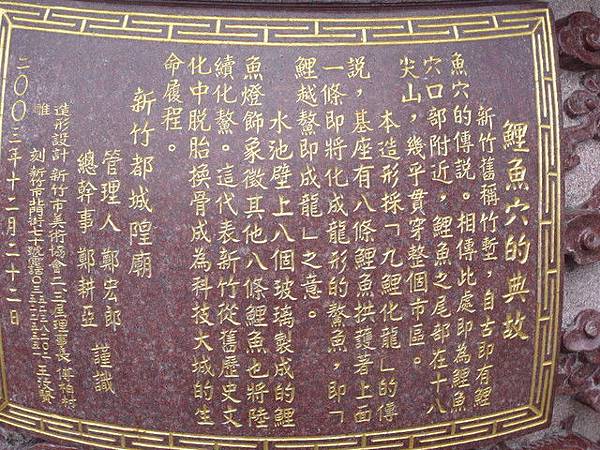 鯉魚穴的典故
新竹舊稱竹塹，自古即有鯉
魚穴的傳說。相傳此處即為鯉魚
穴口部附近，鯉魚之尾部在十八
尖山，幾乎貫穿整個市區。
本造形採「九鯉化龍」的傳
說，基座有八條鯉魚拱護著上面
一條即將化成龍形的鰲魚，即「
鯉越鰲即成龍」之意。
水池壁上八個玻璃製成的鯉
魚燈飾象徵其他八條鯉魚也將陸
續化鰲。這代表新竹從舊歷史文
化中脫胎換骨成為科技大城的生
命履程。
新竹都城隍廟
管理人 鄭宏郎
總幹事 鄭耕亞 謹識
造形設計 新竹市美術協會二、三屆理事長 傅柏村
雕 刻 新竹市
二00三年十二月二十二日